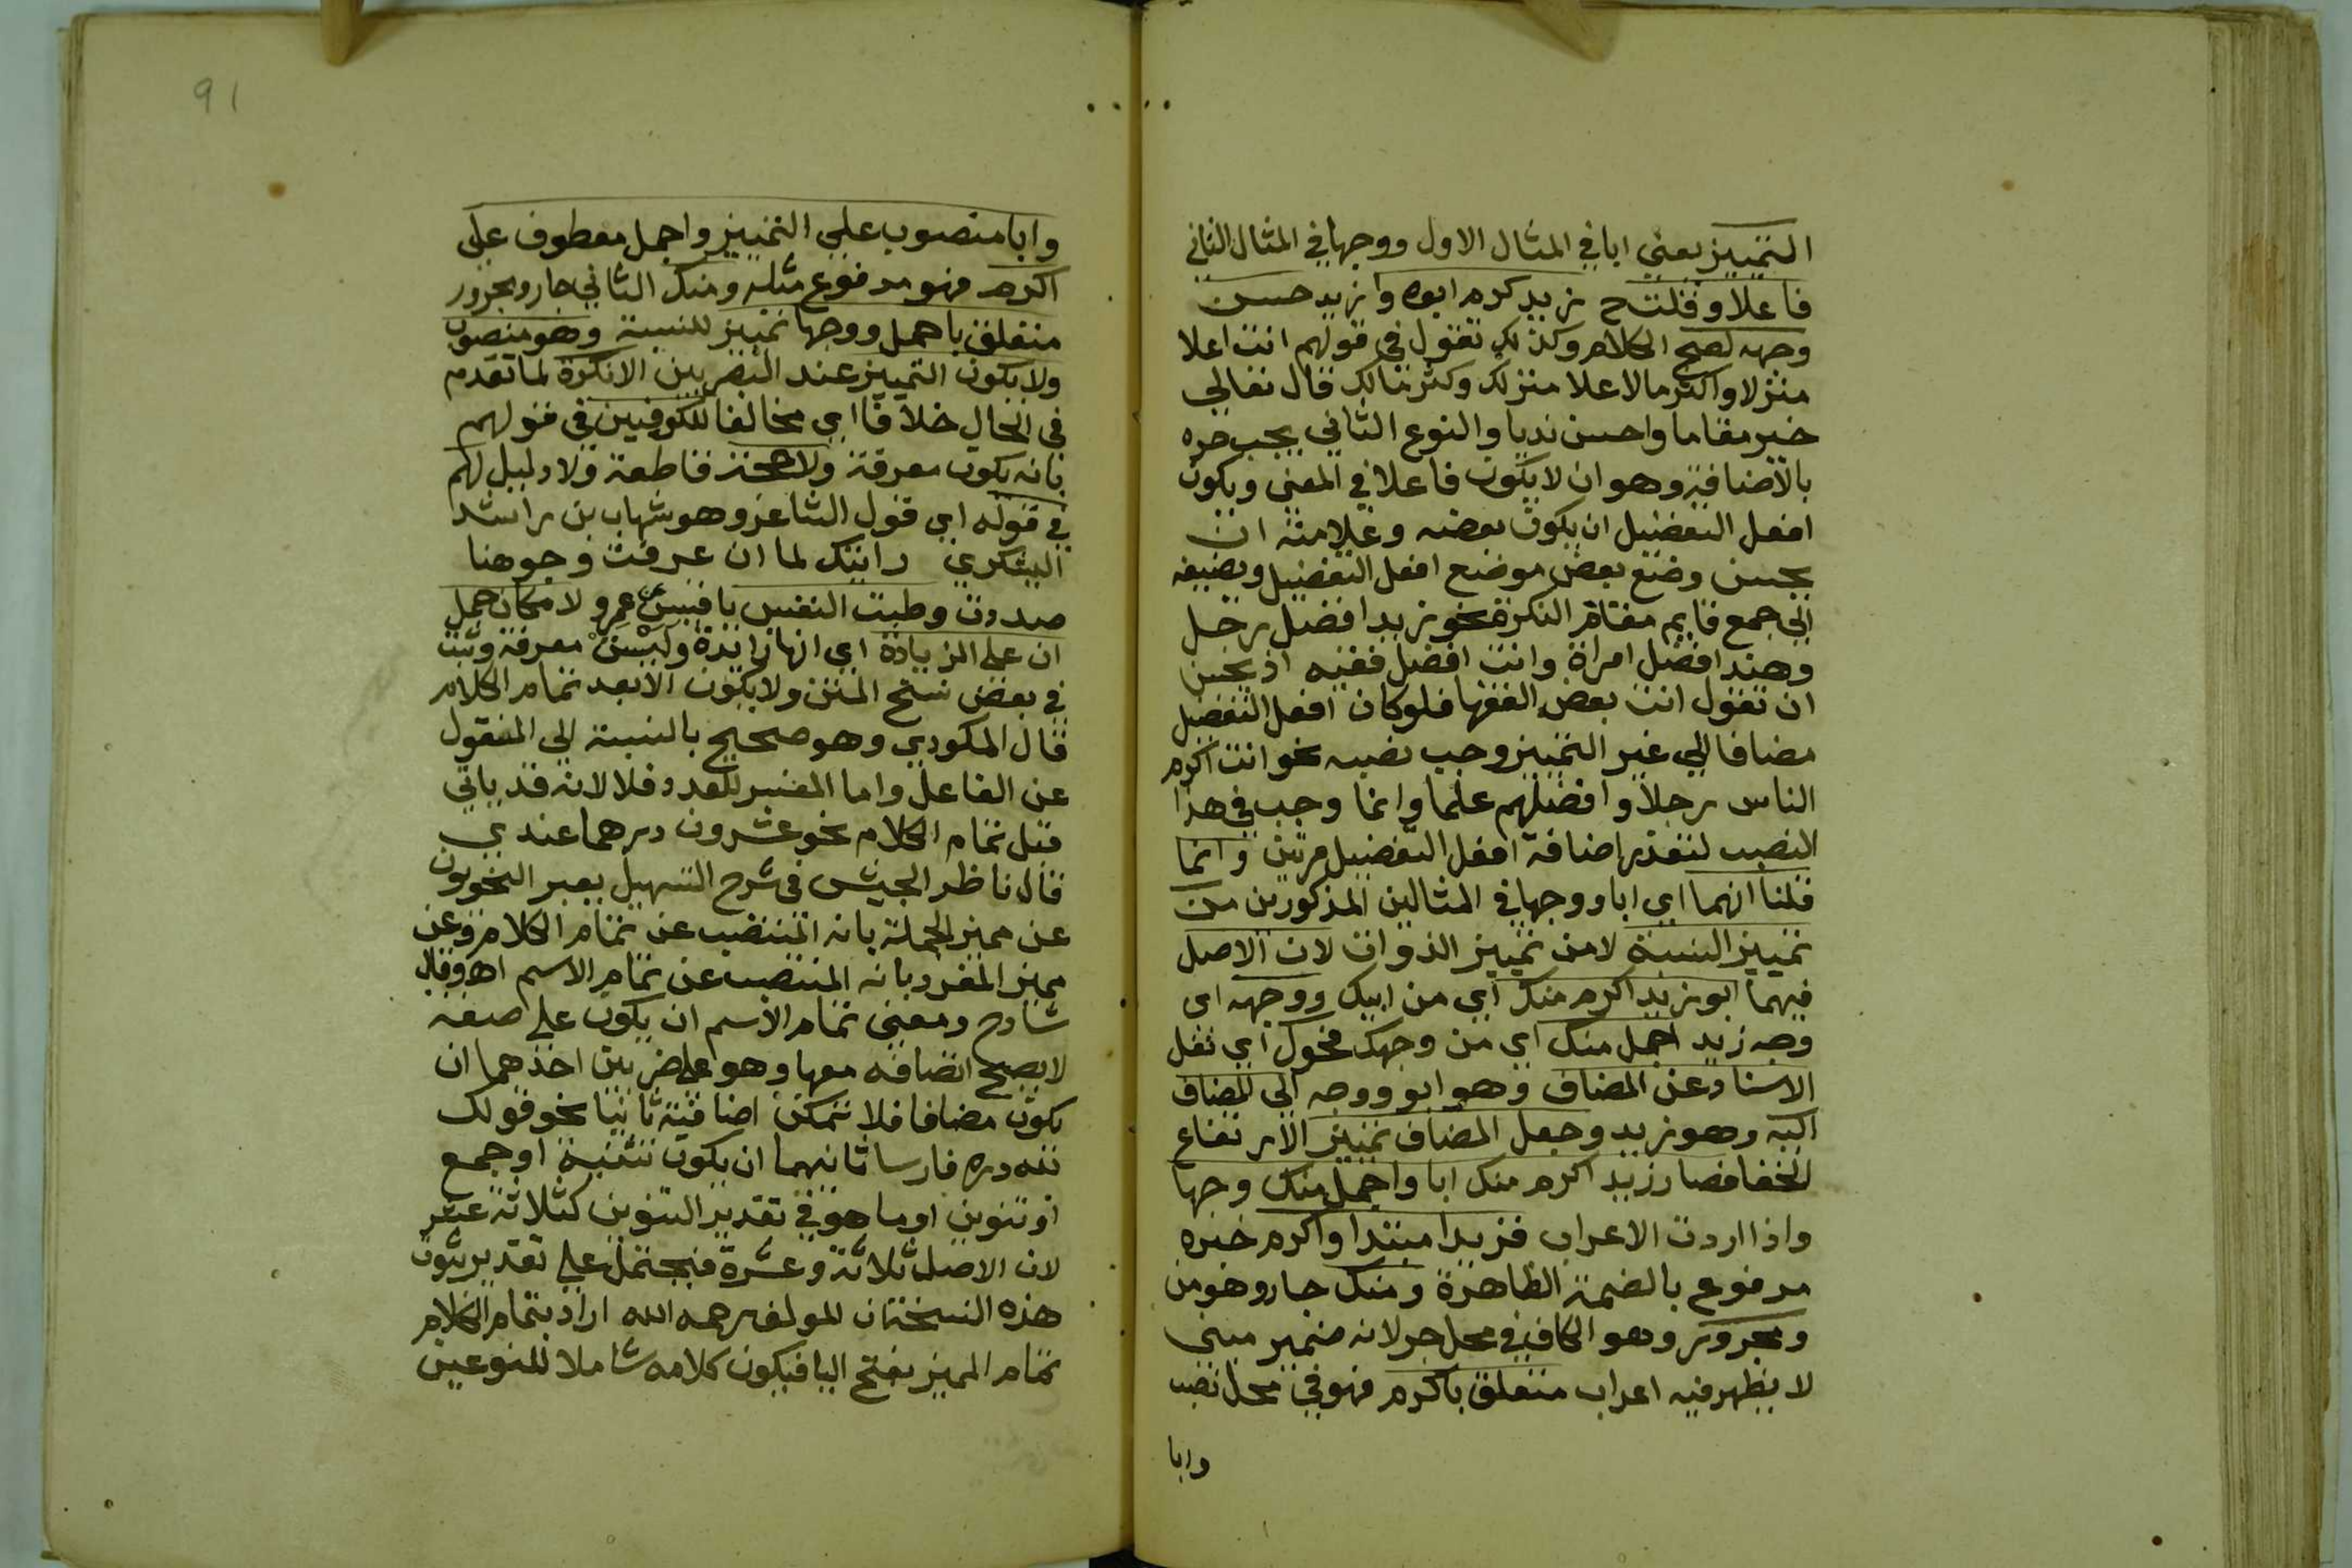 التمييز يعني ابا في المثال الاول ووجها في المثال الثاني
فاعلا وقلت ح زيد كرم ابوه وزيد حسن
وجهه لصح الكلام وكذلك تقول في قولهم انت اعلا
منزلا واكثر مالا علا منزلك وكثر مالك قال تعالي
خير مقاما واحسن نديا والنوع الثاني يجب جره
بالاضافة وهو ان لا يكون فاعلا في المعني ويكون
افعل التفضيل ان يكون بعضه وعلامته ان
يحسن وضع بعض موضع افعل التفضيل ويضيفه
الي جمع قايم مقام النكرة نحو زيد افضل رجل
وهند افضل امراة وانت افضل فقيه اذ يحسن
ان تقول انت بعض الفقها فلو كان افعل التفضيل
مضافا الي غير التمييز وجب نصبه نحو انت اكرم
الناس رجلا وافضلهم علما وانما وجب في هذا
النصب لتعذر اضافة افعل التفضيل مرتين وانما
قلنا انهما اي ابا ووجها في المثالين المذكورين من
تمييز النسبة لا من تمييز الذوات لان الاصل
فيهما ابو زيد اكرم منك اي من ابيك ووجهه اي
وجه زيد اجمل منك اي من وجهك فحول اي نقل
الاسناد عن المضاف وهو ابو ووجه الي المضاف
اليه وهو زيد وجعل المضاف تمييز الارتفاع
الخفا فصار زيد اكرم منك ابا واجمل منك وجها
واذا اردت الاعراب فزيد مبتدا واكرم خبره
مرفوع بالضمة الظاهرة ومنك جار وهو من
ومجرور وهو الكاف في محل جر لانه ضمير مبني
لا يظهر فيه اعراب متعلق باكرم فهو في محل نصب
وابا
91
وابا منصوب علي التمييز واجمل معطوف علي
اكرم فهو مرفوع مثله ومنك الثاني جار ومجرور
متعلق باجمل ووجها تمييز للنسبة وهو منصوب
ولا يكون التمييز عند البصريين الا نكرة لما تقدم
في الحال خلافا اي مخالفا للكوفيين في قولهم
بانه يكون معرفة ولا حجة قاطعة ولا دليل لهم
في قوله اي قول الشاعر وهو شهاب بن راشد
اليشكري رايتك لما ان عرفت وجوهنا
صددت وطبت النفس يا قيس عن عمرو لامكان حمل
ان علي الزيادة اي انها زايدة وليس معرفة وثبت
في بعض نسخ المتن ولا يكون الا بعد تمام الكلام
قال المكودي وهو صحيح بالنسبة الي المنقول
عن الفاعل واما المفسر للعدد فلا لانه قد ياتي
قبل تمام الكلام نحو عشرون درهما عندي
قال ناظر الجيش في شرح التسهيل يعبر النحويون
عن مميز الجملة بانه المنتصب عن تمام الكلام وعن
مميز المفرد بانه المنتصب عن تمام الاسم اهـ وقال
شارح ومعني تمام الاسم ان يكون علي صفة
لا يصح اضافه معها وهو علي ضربين احدهما ان
يكون مضافا فلا تمكن اضافته ثانيا نحو قولك
لله دره فارسا ثانيهما ان يكون تثنية او جمع
او تنوين او ما هو في تقدير التنوين كثلاثة عشر
لان الاصل ثلاثة وعشرة فيحتمل علي تقدير ثبوت
هذه النسختان للمولف رحمه الله اراد بتمام الكلام
تمام المميز بفتح اليا فيكون كلامه شاملا للنوعين